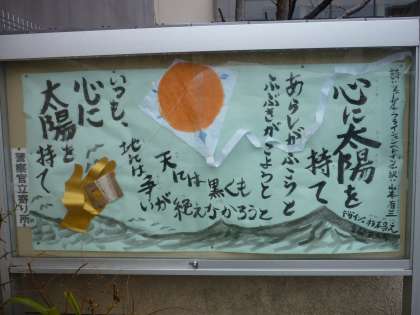 心に太陽を
持て
あらしがふこうと
ふぶきがこようと
天には黒くも
地には争いが
絶えなかろうと
いつも、
心に
太陽を
持て
警察官立寄り所